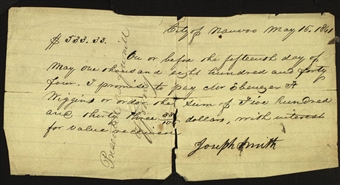 City of Nauvoo May 15, 184
$ 533.33.
On or before the fifteenth day of
May one thousand eight hundred and forty
four. I promise to pay Ebenezer F
Wiggins or order the Sum of Five hundred
and thirty three 33/100 dollars, with interest
for value received
Joseph Smith